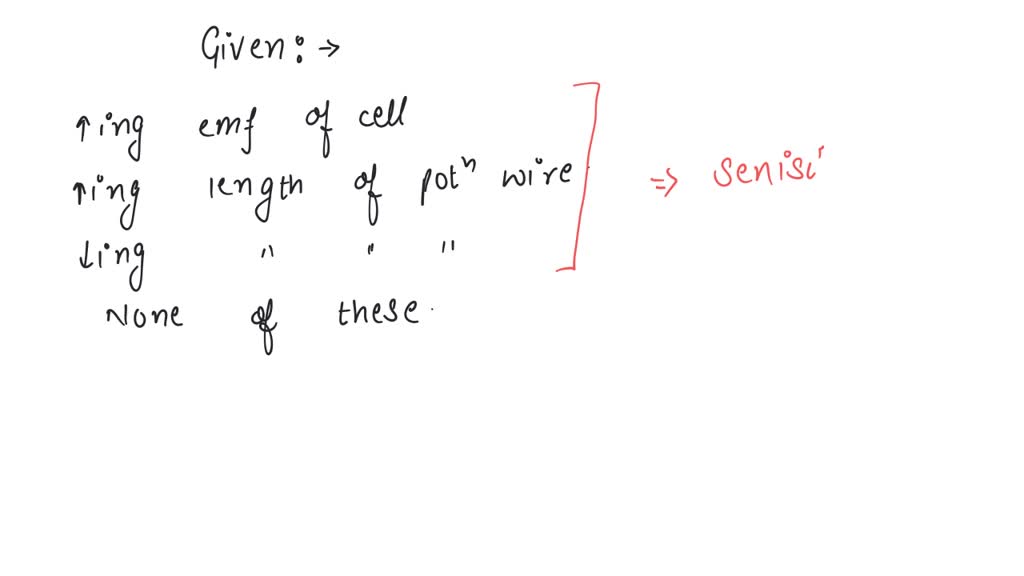 Given: →
↑ing emf of cell
↑ing length of potⁿ wire ⇒ senisi
↓ing " " "
None of these.